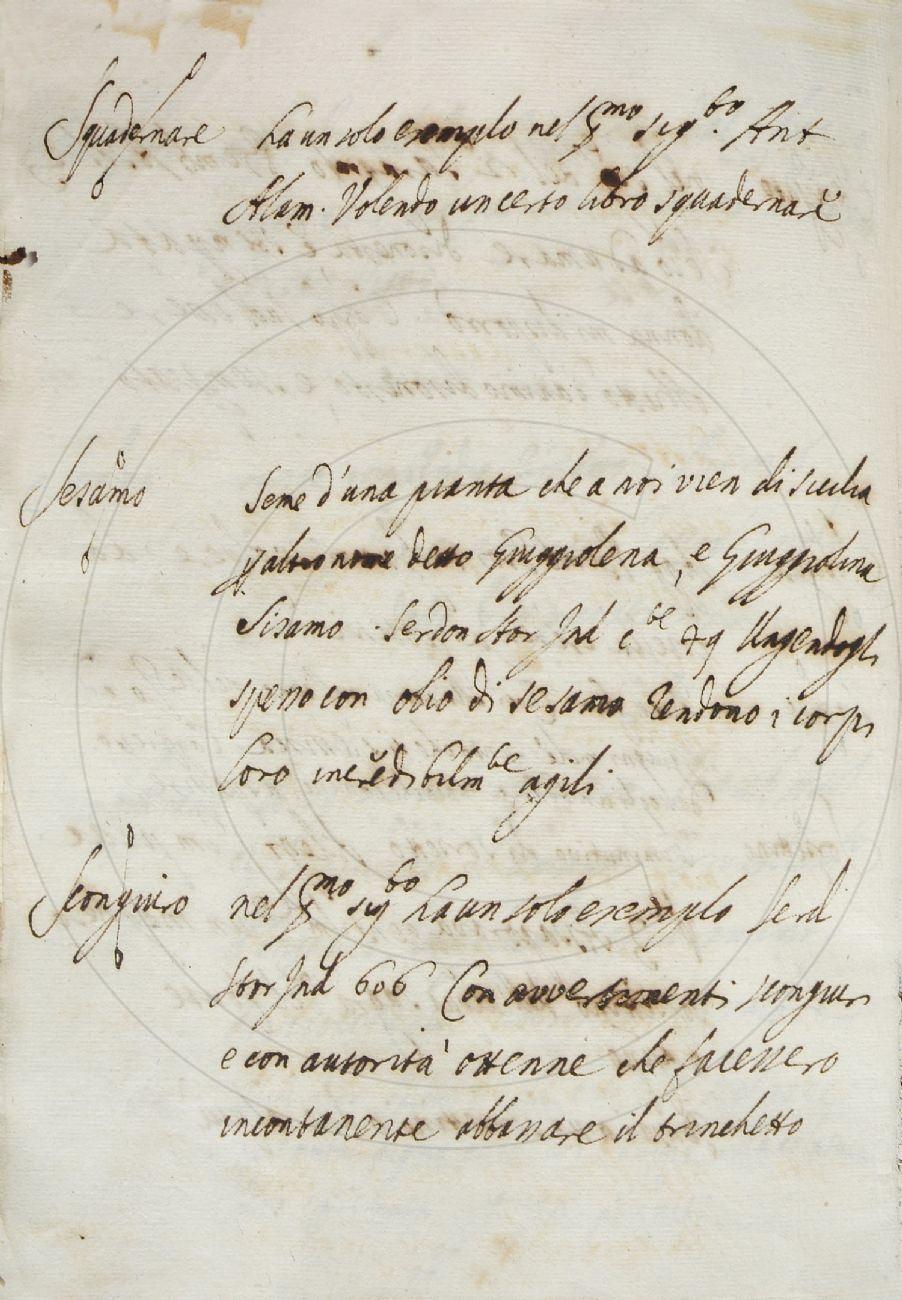 Squadernare ha un solo exemplo nel p.mo sig.to Ant
Alam. Volendo un certo libro squadernare
Sesamo Seme d'una pianta che a noi vien di sicilia
p altro nome detto Giuggiolena, e Giuggiolina
Sisamo. Serdon stor Ind c. 49 Ungendogli
spesso con olio di sesamo rendono i corpi
loro incredibilm.te agili
Scongiuro nel p.mo sig.to ha un solo exemplo Serd
stor Ind 606 Con avvertimenti scongiuri
e con autorità ottenne che facessero
incontanente abbassare il trinchetto